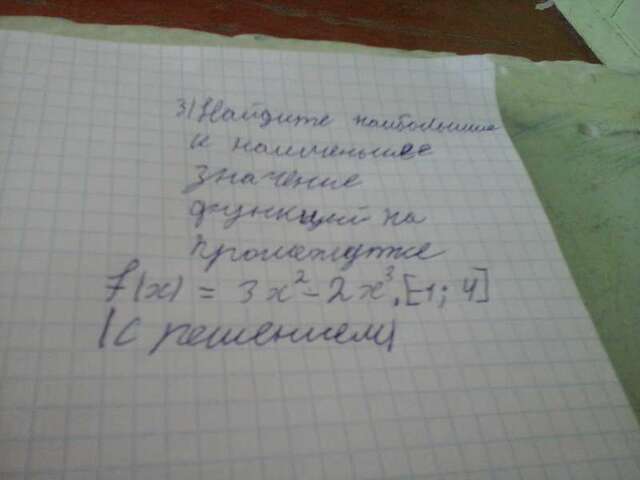 3) Найдите наибольшее
и наименьшее
значение
функций на
промежутке
f(x) = 3x² - 2x³, [-1; 4]
(с решением)